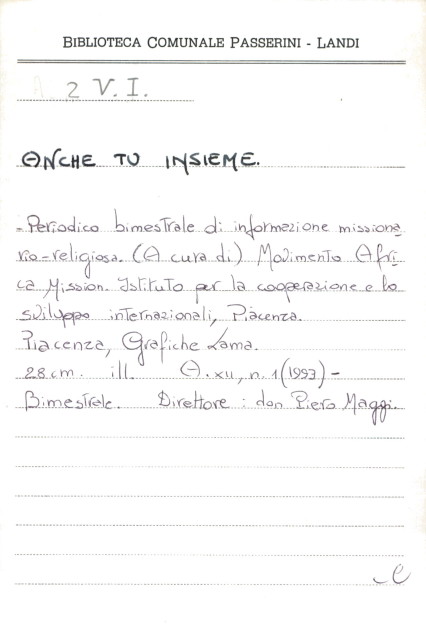 BIBLIOTECA COMUNALE PASSERINI - LANDI
A. 2 V. I.
ANCHE TU INSIEME.
- Periodico bimestrale di informazione missiona
rio-religiosa. (A cura di) Movimento Afri-
ca Mission. Istituto per la cooperazione e lo
sviluppo internazionali, Piacenza.
Piacenza, Grafiche Lama.
28 cm. ill. A. XII, n. 1 (1993) -
Bimestrale. Direttore : don Piero Maggi.